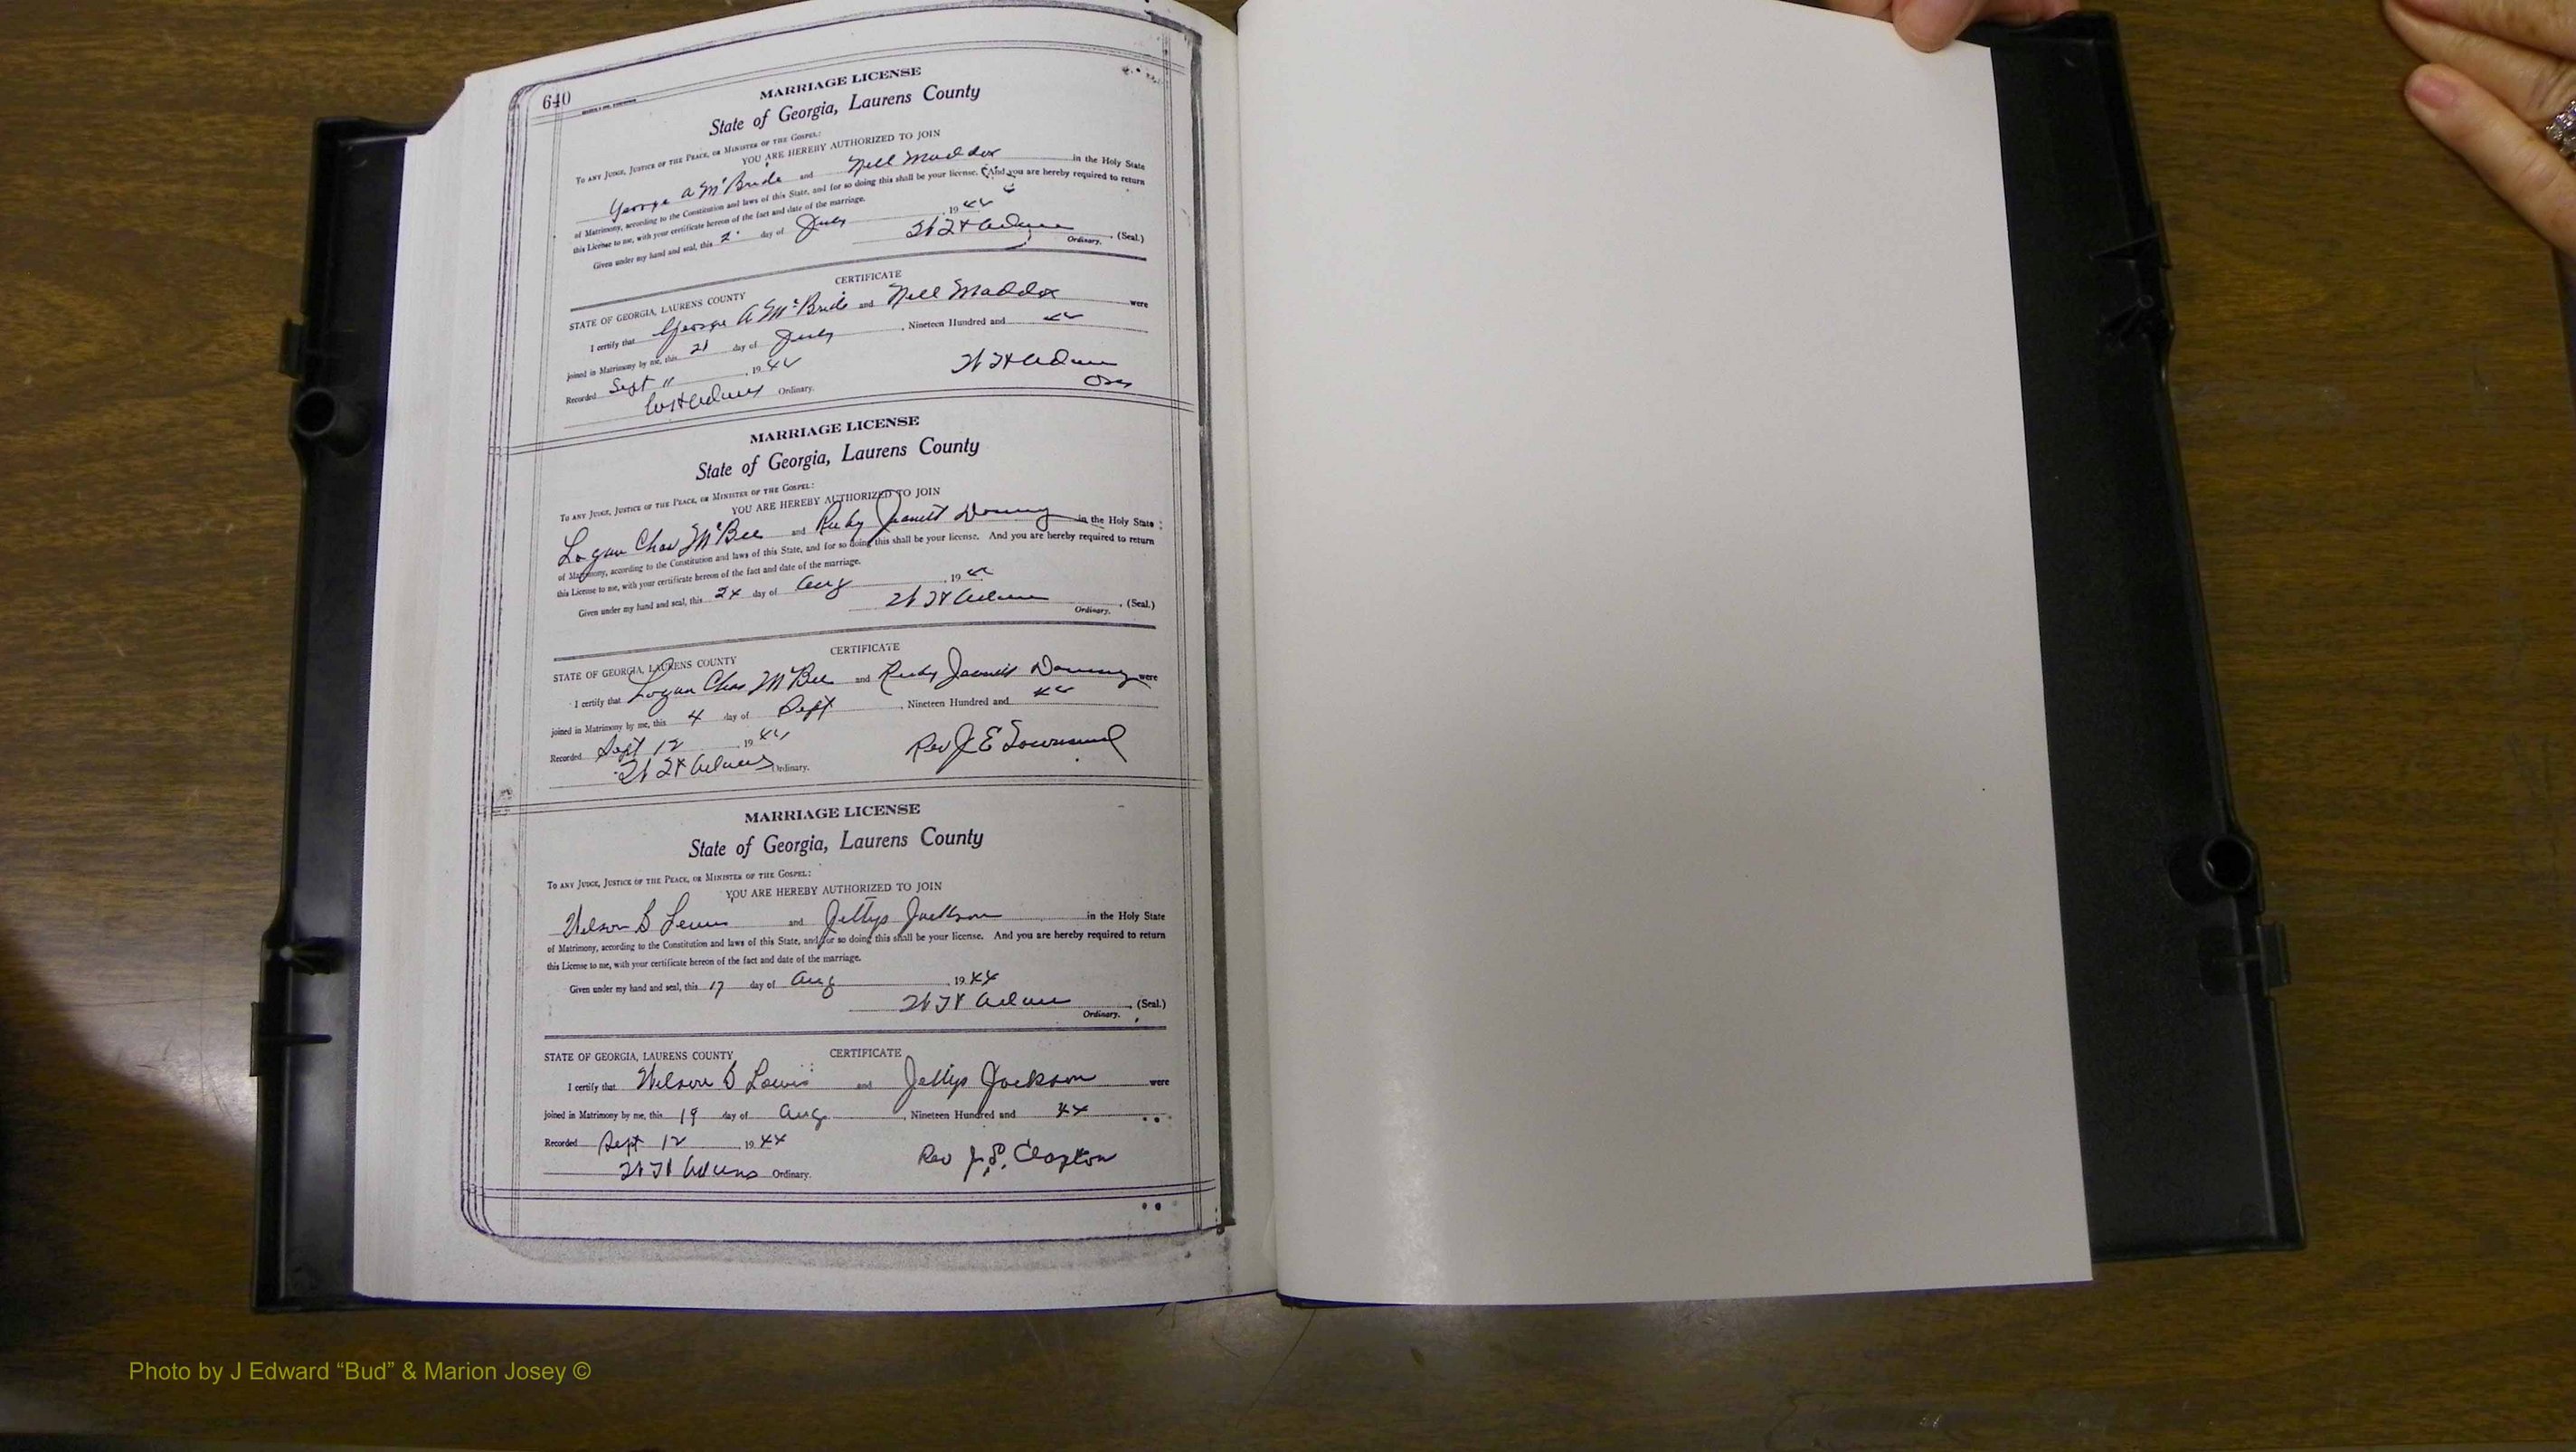 640
MARRIAGE LICENSE
State of Georgia, Laurens County
TO ANY JUDGE, JUSTICE OF THE PEACE, OR MINISTER OF THE GOSPEL:
YOU ARE HEREBY AUTHORIZED TO JOIN
George A McBride and Nell Maddox in the Holy State
of Matrimony, according to the Constitution and laws of this State, and for so doing this shall be your license. And you are hereby required to return
this License to me, with your certificate hereon of the fact and date of the marriage.
Given under my hand and seal, this day of July, 1944
Ordinary. (Seal.)
CERTIFICATE
STATE OF GEORGIA, LAURENS COUNTY
I certify that George A McBride and Nell Maddox were
joined in Matrimony by me, this 21 day of July, Nineteen Hundred and 44
Recorded Sept 11, 1944
W H Adams
W H Adams Ordinary.
MARRIAGE LICENSE
State of Georgia, Laurens County
TO ANY JUDGE, JUSTICE OF THE PEACE, OR MINISTER OF THE GOSPEL:
YOU ARE HEREBY AUTHORIZED TO JOIN
Logan Chas McBee and Ruby in the Holy State
of Matrimony, according to the Constitution and laws of this State, and for so doing this shall be your license. And you are hereby required to return
this License to me, with your certificate hereon of the fact and date of the marriage.
Given under my hand and seal, this 24 day of Aug, 1944
W H Adams Ordinary. (Seal.)
CERTIFICATE
STATE OF GEORGIA, LAURENS COUNTY
I certify that Logan Chas McBee and Ruby were
joined in Matrimony by me, this 4 day of Sept, Nineteen Hundred and 44
Recorded Sept 12, 1944
Rev J E Townsend
W H Adams Ordinary.
MARRIAGE LICENSE
State of Georgia, Laurens County
TO ANY JUDGE, JUSTICE OF THE PEACE, OR MINISTER OF THE GOSPEL:
YOU ARE HEREBY AUTHORIZED TO JOIN
Wilson B Lewis and Jettys Jackson in the Holy State
of Matrimony, according to the Constitution and laws of this State, and for so doing this shall be your license. And you are hereby required to return
this License to me, with your certificate hereon of the fact and date of the marriage.
Given under my hand and seal, this 17 day of Aug, 1944
W H Adams Ordinary. (Seal.)
CERTIFICATE
STATE OF GEORGIA, LAURENS COUNTY
I certify that Wilson B Lewis and Jettys Jackson were
joined in Matrimony by me, this 19 day of Aug, Nineteen Hundred and 44
Recorded Sept 12, 1944
Rev J. S. Claxton
W H Adams Ordinary.
Photo by J Edward “Bud” & Marion Josey ©